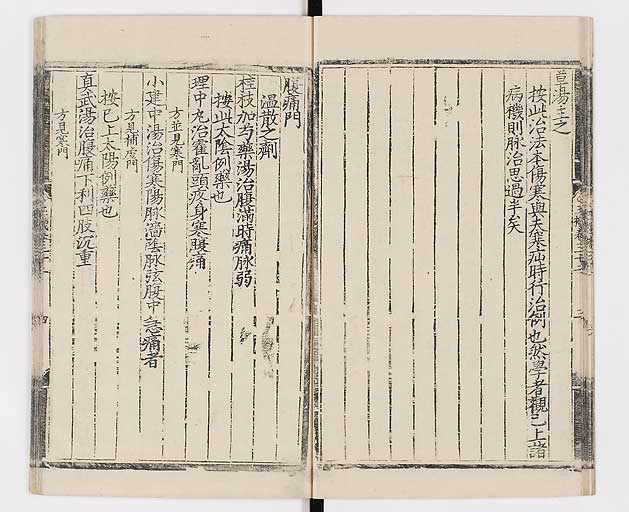 草湯主之
按此治法本傷寒與夫寒疝時行治例也然學者觀已上諸
病機則脉治思過半矣
腹痛門
溫散之劑
桂枝加芍藥湯治腹滿時痛脉弱
按此太陰例藥也
理中丸治霍亂頭疼身寒腹痛
方並見寒門
小建中湯治傷寒陽脉濇陰脉弦腹中急痛者
方見補虛門
按已上太陽例藥也
真武湯治腹痛下利四肢沉重
方見寒門